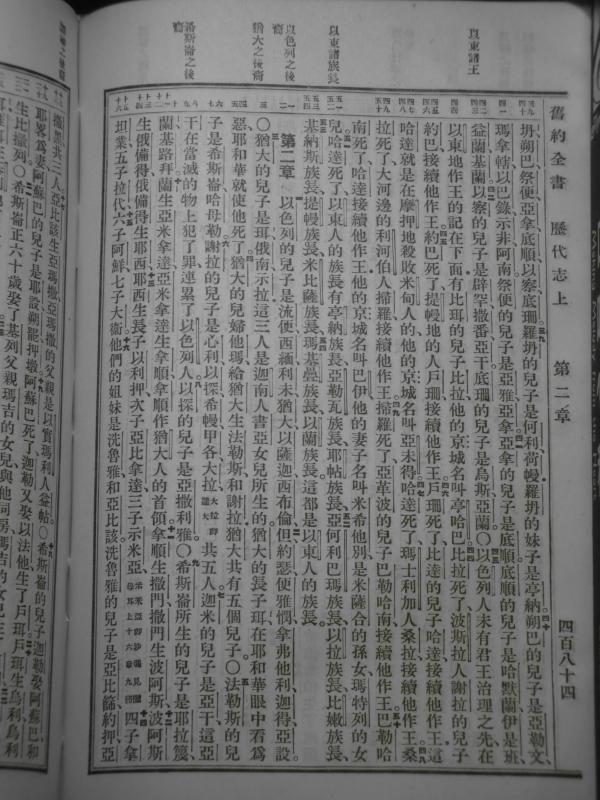 舊約全書　歷代志上　第二章　四百八十四
以東諸王
以東諸族長
以色列之後裔
猶大之後裔
希斯崙之後裔
坍朔巴祭便亞拿底順以察底珊羅坍的兒子是何利荷幔羅坍的妹子是亭納朔巴的兒子是亞勒文
瑪拿轄以巴錄示非阿南祭便的兒子是亞雅亞拿亞拿的兒子是底順底順的兒子是哈默蘭伊是班
益蘭基蘭以察的兒子是辟罕撒番亞干底珊的兒子是烏斯亞蘭〇以色列人未有君王治理之先在
以東地作王的記在下面有比珥的兒子比拉他的京城名叫亭哈巴比拉死了波斯拉人謝拉的兒子
約巴接續他作王約巴死了提幔地的人戶珊接續他作王戶珊死了比達的兒子哈達接續他作王這
哈達就是在摩押地殺敗米甸人的他的京城名叫亞未得哈達死了瑪士利加人桑拉接續他作王桑
拉死了大河邊的利河伯人掃羅接續他作王掃羅死了亞革波的兒子巴勒哈南接續他作王巴勒哈
南死了哈達接續他作王他的京城名叫巴伊他的妻子名叫米希他別是米薩合的孫女瑪特列的女
兒哈達死了以東人的族長有亭納族長亞勒瓦族長耶帖族長亞何利巴瑪族長以拉族長比嫩族長
基納斯族長提幔族長米比薩族長瑪基疊族長以蘭族長這都是以東人的族長
第二章　以色列的兒子是流便西緬利未猶大以薩迦西布倫但約瑟便雅憫拿弗他利迦得亞設
〇猶大的兒子是珥俄南示拉這三人是迦南人書亞女兒所生的猶大的長子珥在耶和華眼中看為
惡耶和華就使他死了猶大的兒婦他瑪給猶大生法勒斯和謝拉猶大共有五個兒子〇法勒斯的兒
子是希斯崙哈母勒謝拉的兒子是心利以探希幔甲各大拉共五人迦米的兒子是亞干這亞
干在當滅的物上犯了罪連累了以色列人以探的兒子是亞撒利雅〇希斯崙所生的兒子是耶拉篾
蘭基路拜蘭生亞米拿達亞米拿達生拿順拿順作猶大人的首領拿順生撒門撒門生波阿斯波阿斯
生俄備得俄備得生耶西耶西生長子以利押次子亞比拿達三子示米亞四子拿
坦業五子拉代六子阿鮮七子大衛他們的姐妹是洗魯雅和亞比該洗魯雅的兒子是亞比篩約押亞
撒黑共三人亞比該生亞瑪撒亞瑪撒的父親是以實瑪利人益帖〇希斯崙的兒子迦勒娶阿蘇巴和
耶畧為妻阿蘇巴的兒子是耶設朔罷押墩阿蘇巴死了迦勒又娶以法他生了戶珥戶珥生烏利烏利
生比撒列〇希斯崙正六十歲娶了基列父親瑪吉的女兒與他同房瑪吉的女兒生了